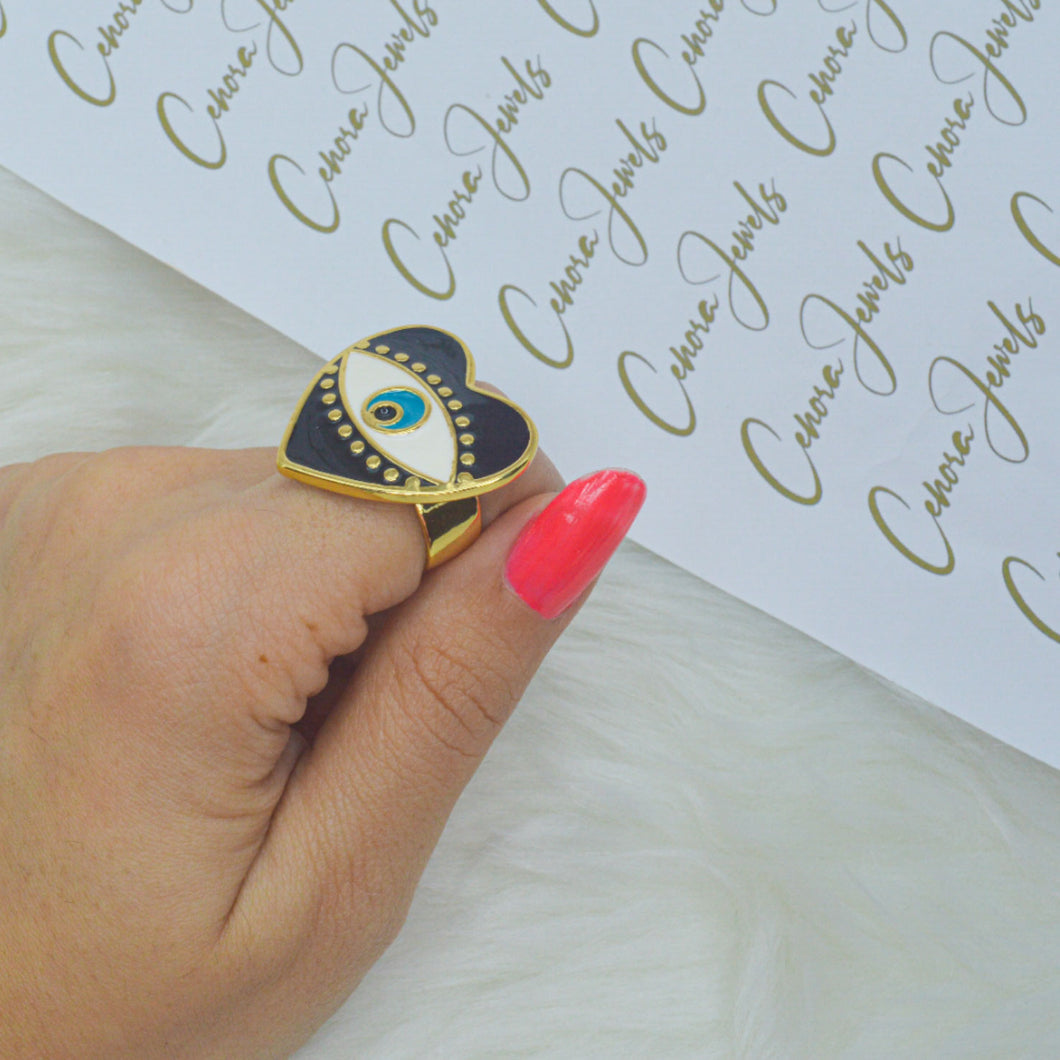 Cehora Jewels
Cehora Jewels
Cehora Jewels
Cehora Jewels
Cehora Jewels
Cehora Jewels
Cehora Jewels
Cehora Jewels
Cehora
Cehora
Cehora Jewels
Cehora Jewels